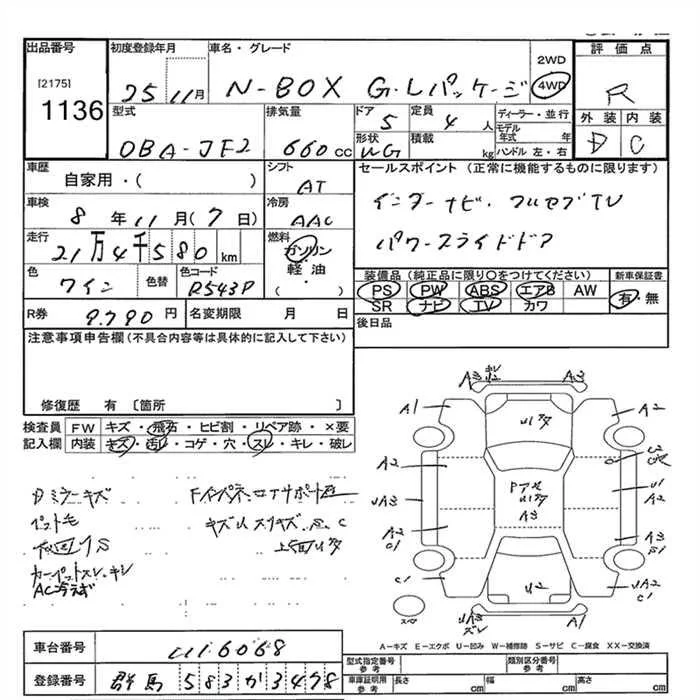 出品番号 初度登録年月 車名・グレード
[2175] 1136
25 11月 N-BOX G・Lパッケージ 2WD 4WD
評価点 R
外装 内装
D C
型式 DBA-JF2
排気量 660cc
ドア 5 定員 4人
ディーラー・並行
モデル年式 年
ハンドル 左・右
形状 WG 積載 kg
車歴 自家用・( )
シフト AT
セールスポイント (正常に機能するものに限ります)
インターナビ・フルセグTV
パワースライドドア
車検 8年11月(7日)
冷房 AAC
走行 21万4千580km
燃料 ガソリン・軽油・( )
色 ワイン 色替 色コード R543P
装備品 (純正品に限り○をつけてください) 新車保証書
PS PW ABS エアB AW 有・無
SR ナビ TV カワ
R券 9.790円 名変期限 月 日
後日品
注意事項申告欄(不具合内容等は具体的に記入して下さい)
修復歴 有 〔箇所 〕
検査員 FW キズ・飛石・ヒビ割・リペア跡・×要
記入欄 内装 キズ・汚れ・コゲ・穴・スレ・キレ・破レ
Dミラーキズ
ペット毛
カーペットスレ、キレ
A3 A3
A1 U1ヌタ A2
A2
UA3 U1 A2
A2 C1 A3 A3 S1
C1 U2 UA2 C1
スペア UA3 ズレ A1
A-キズ E-エクボ U-凹み W-補修跡 S-サビ C-腐食 XX-交換済
車台番号 1116068
型式指定番号 参考 類別区分番号 参考
登録番号 群馬 583か3498
車庫証明用 参考 長さ cm 幅 cm 高さ cm